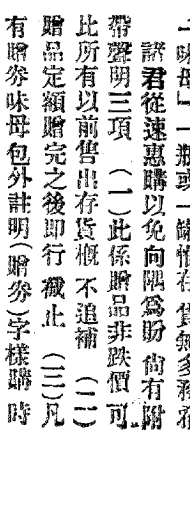 一味母」一瓶或一罐惟存貨無多務希
諸君從速惠購以免向隅爲盼尙有附
帶聲明三項（一）此係贈品非跌價可
比所有以前售出存貨槪不追補（二）
贈品定額贈完之後即行截止（三）凡
有贈券味母包外註明（贈券）字樣購時